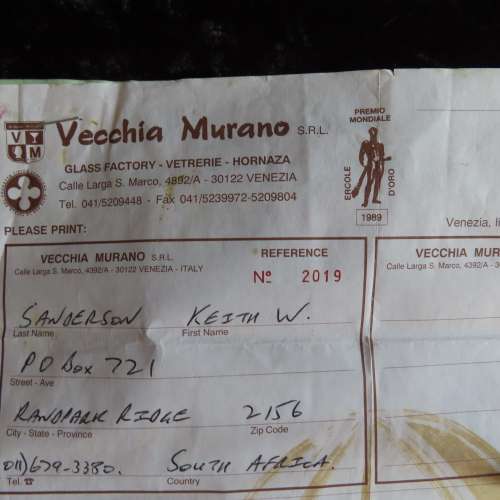 V T
M
Vecchia Murano S.R.L.
GLASS FACTORY - VETRERIE - HORNAZA
Calle Larga S. Marco, 4892/A - 30122 VENEZIA
Tel. 041/5209448 - Fax 041/5239972-5209804
PREMIO
MONDIALE
ERCOLE
D'ORO
1989
PLEASE PRINT:
Venezia, li
VECCHIA MURANO S.R.L.
Calle Larga S. Marco, 4392/A - 30122 VENEZIA - ITALY
REFERENCE
Nº 2019
VECCHIA MUR
Calle Larga S. Marco, 4392/A - 3
SANDERSON KEITH W.
Last Name First Name
PO Box 721
Street - Ave
RANDPARK RIDGE 2156
City - State - Province Zip Code
(011)679-3380. SOUTH AFRICA.
Tel. ☎ Country